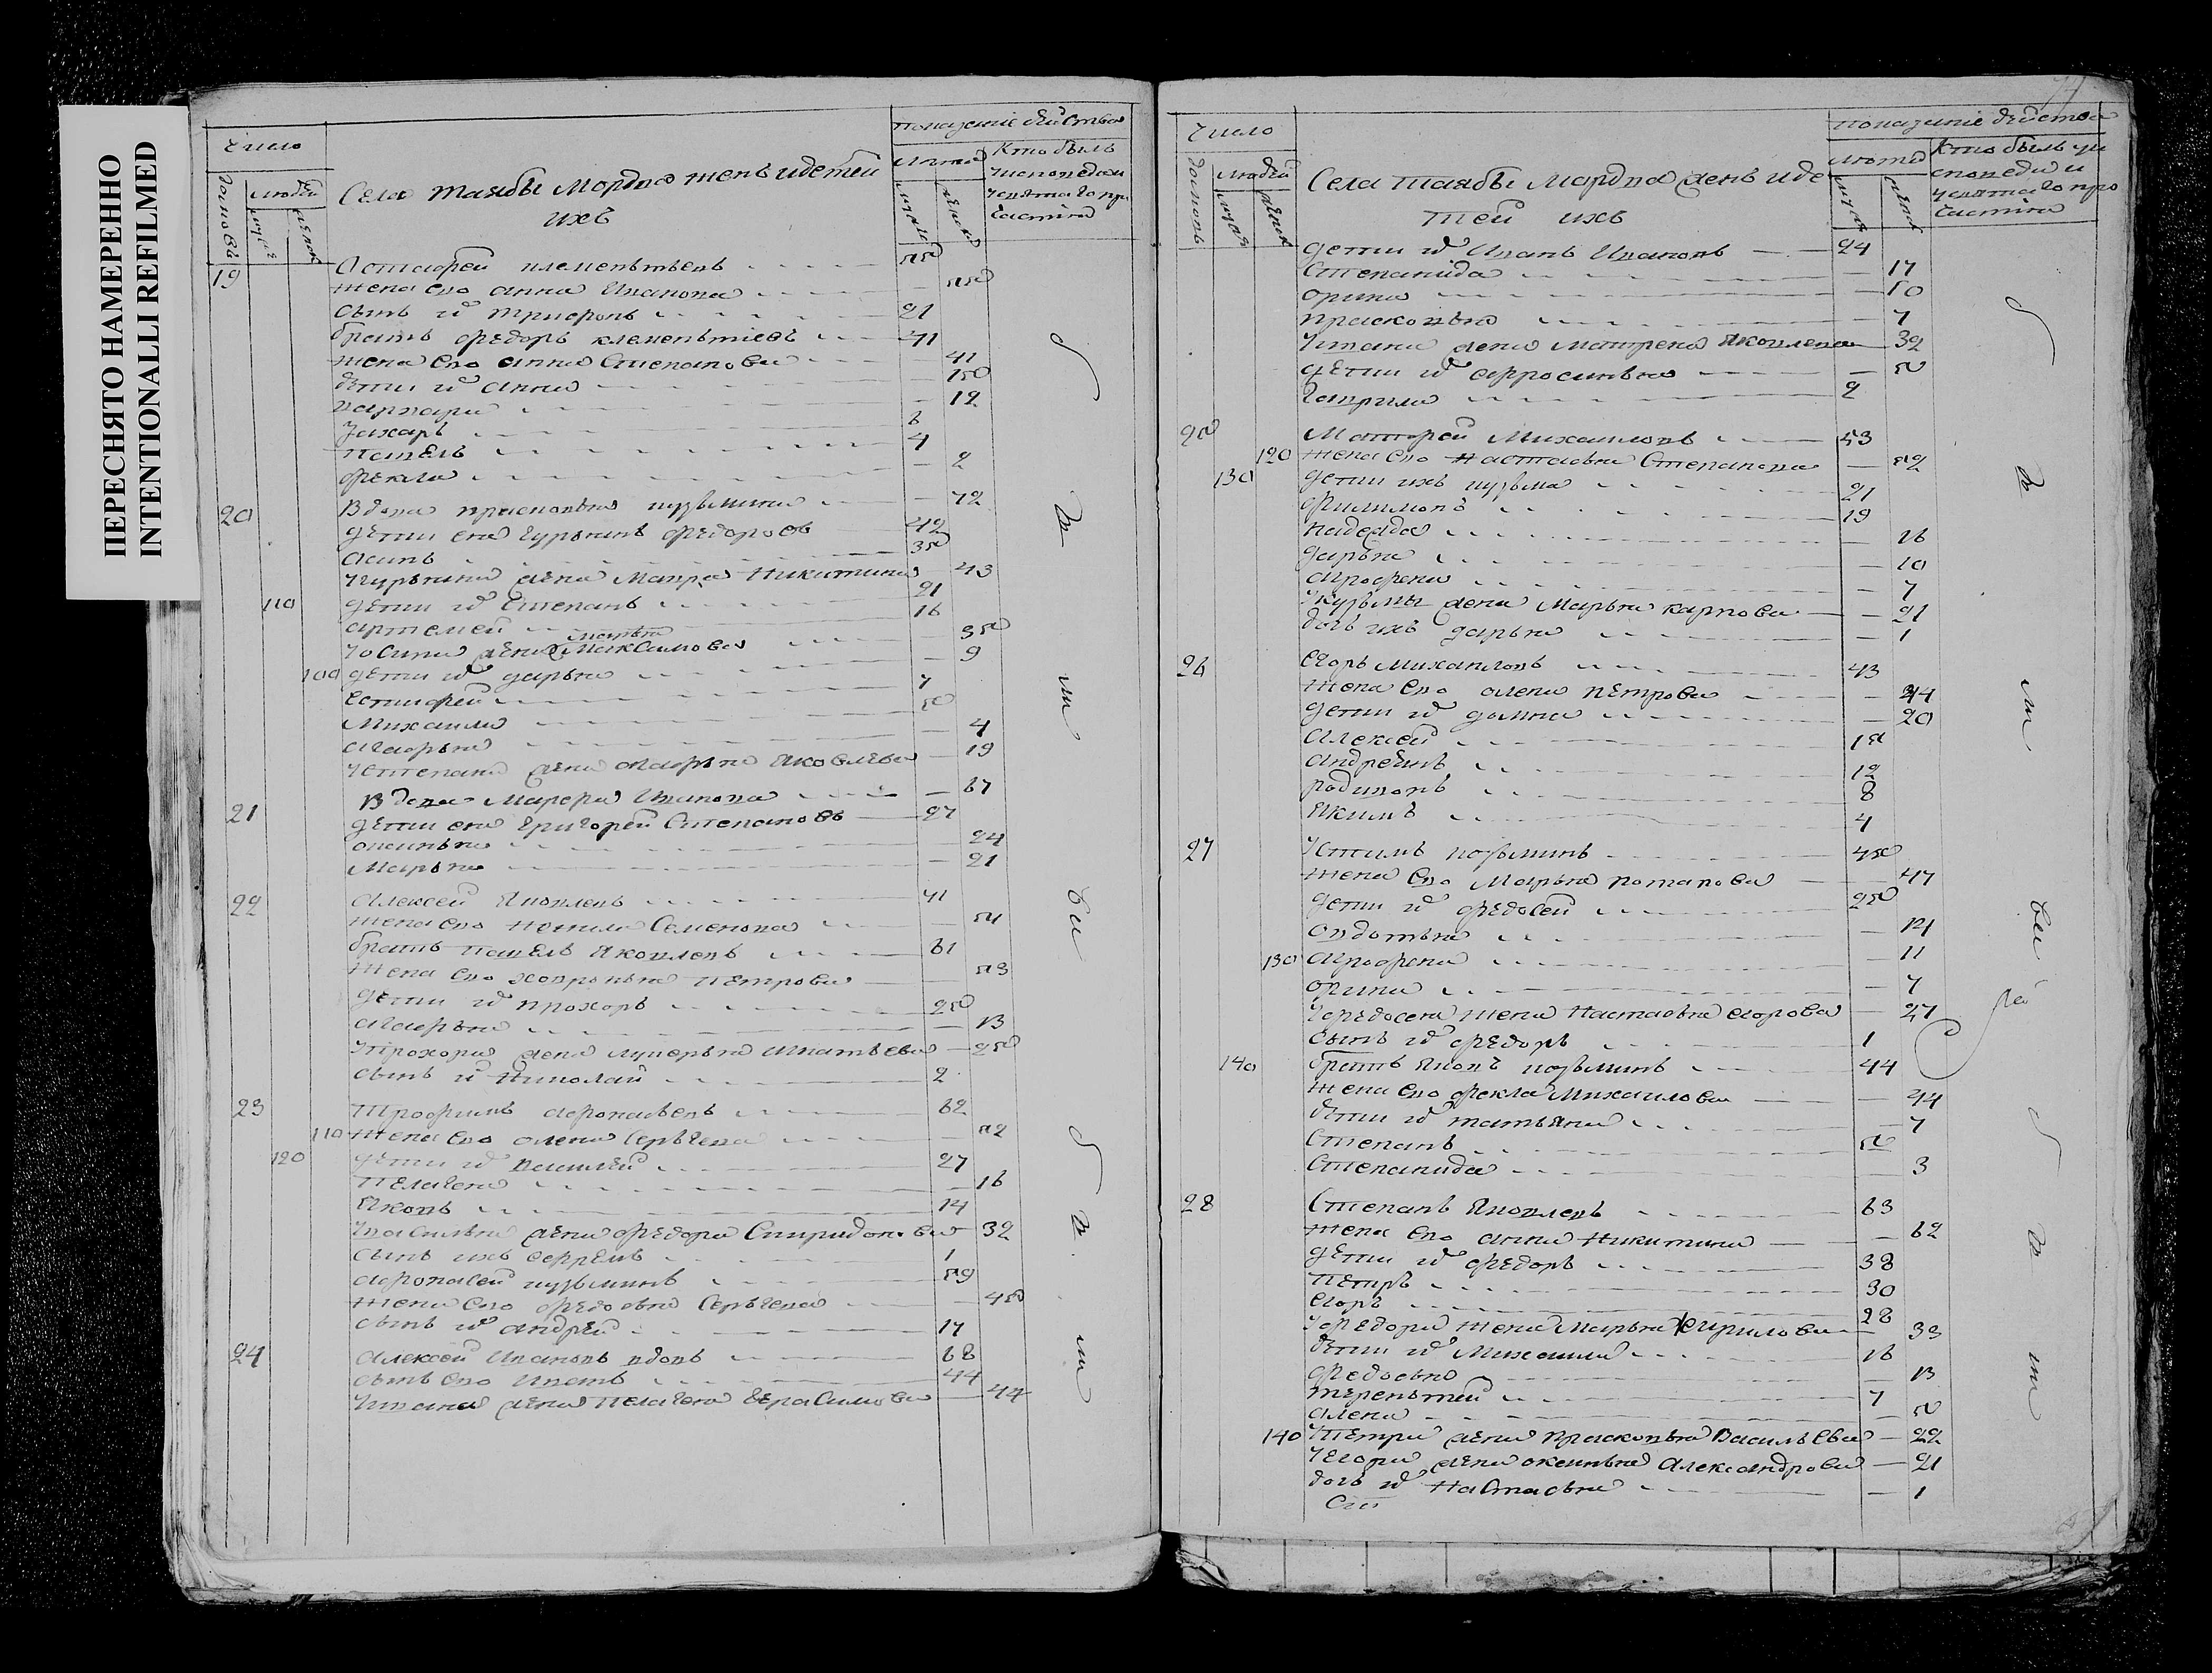 ПЕРЕСНЯТО НАМЕРЕННО
INTENTIONALLI REFILMED
Число
домовъ
людей
муж
женск
Села Таябы Мордва женъ и детей
ихъ
показаніе действа
лѣта
муж
женск
Кто былъ
исповедан
19
Остафей клементьевъ 55
жена его анна Иванова 55
сынъ их трифонъ 21
братъ федоръ клементьевъ 41
жена его анна Степанова 41
дети их анна 15
варвара 12
Захаръ 6
павелъ 4
фекла 2
20
Вдова прасковья кузьмина 72
дети ея гурьянъ федоровъ 42
осипъ 35
У гурьяна жена Мавра Никитина 43
110
дети их Степанъ 21
артемей 16
У осипа жена марья Максимова 35
100
дети их дарья 9
Естифей 7
Михаила 5
агафья 4
У степана жена марья Яковлева 19
21
Вдова Марфа Иванова 67
дети ея григорей Степановъ 27
оксинья 24
Марья 21
22
алексей Яковлевъ 41
жена его ненила Семенова 54
братъ павелъ Яковлевъ 61
жена его хавронья петрова 53
дети их прохоръ 25
агафья 13
У прохора жена лукерья игнатьева 25
сынъ их Николай 2
23
Трофимъ афонасьевъ 62
110
жена его олена Сергеева 52
120
дети их василей 27
пелагея 16
Яковъ 14
У василья жена федора Спиридонова 32
сынъ ихъ ефремъ 1
афонасей кузьминъ 59
жена его федосья Сергеева 45
сынъ их андрей 17
24
алексей Ивановъ вдовъ 68
сынъ его Иванъ 44
У ивана жена пелагея герасимова 44
бы
ть
Число
домовъ
людей
муж
женск
Села Таябы Мордва женъ и де
тей ихъ
показаніе действа
лѣта
муж
женск
Кто былъ у и
споведи и
дети их Иванъ Ивановъ 24
Степанида 17
орина 10
прасковья 7
У ивана жена Матрена Яковлева 32
дети их афросинья 5
гаврила 2
25
Матфей Михаиловъ 53
120
жена его Настасья Степанова 52
130
дети ихъ кузьма 21
филимонъ 19
надежда 16
дарья 10
агрофена 7
У кузьмы жена Марья карпова 21
дочь ихъ дарья 1
26
Егоръ Михаиловъ 43
жена его олена петрова 44
дети их домна 20
алексей 15
андреянъ 12
родионъ 8
Якимъ 4
27
Устинъ козьминъ 45
жена его Марья потапова 47
дети их федосей 25
овдотья 14
130
агрофена 11
орина 7
У федосея жена Настасья егорова 27
сынъ их федоръ 1
140
братъ Яковъ козьминъ 44
жена его фекла Михаилова 44
дети их татьяна 7
Степанъ 5
Степанида 3
28
Степанъ Яковлевъ 63
жена его анна Никитина 62
дети их федоръ 38
петръ 30
егоръ 28
У федора жена Марья Кирилова 33
дети их Михаила 16
федосья 13
терентей 7
алена 5
140
У петра жена прасковья Васильева 22
У егора жена оксинья александрова 21
дочь их Настасья 1